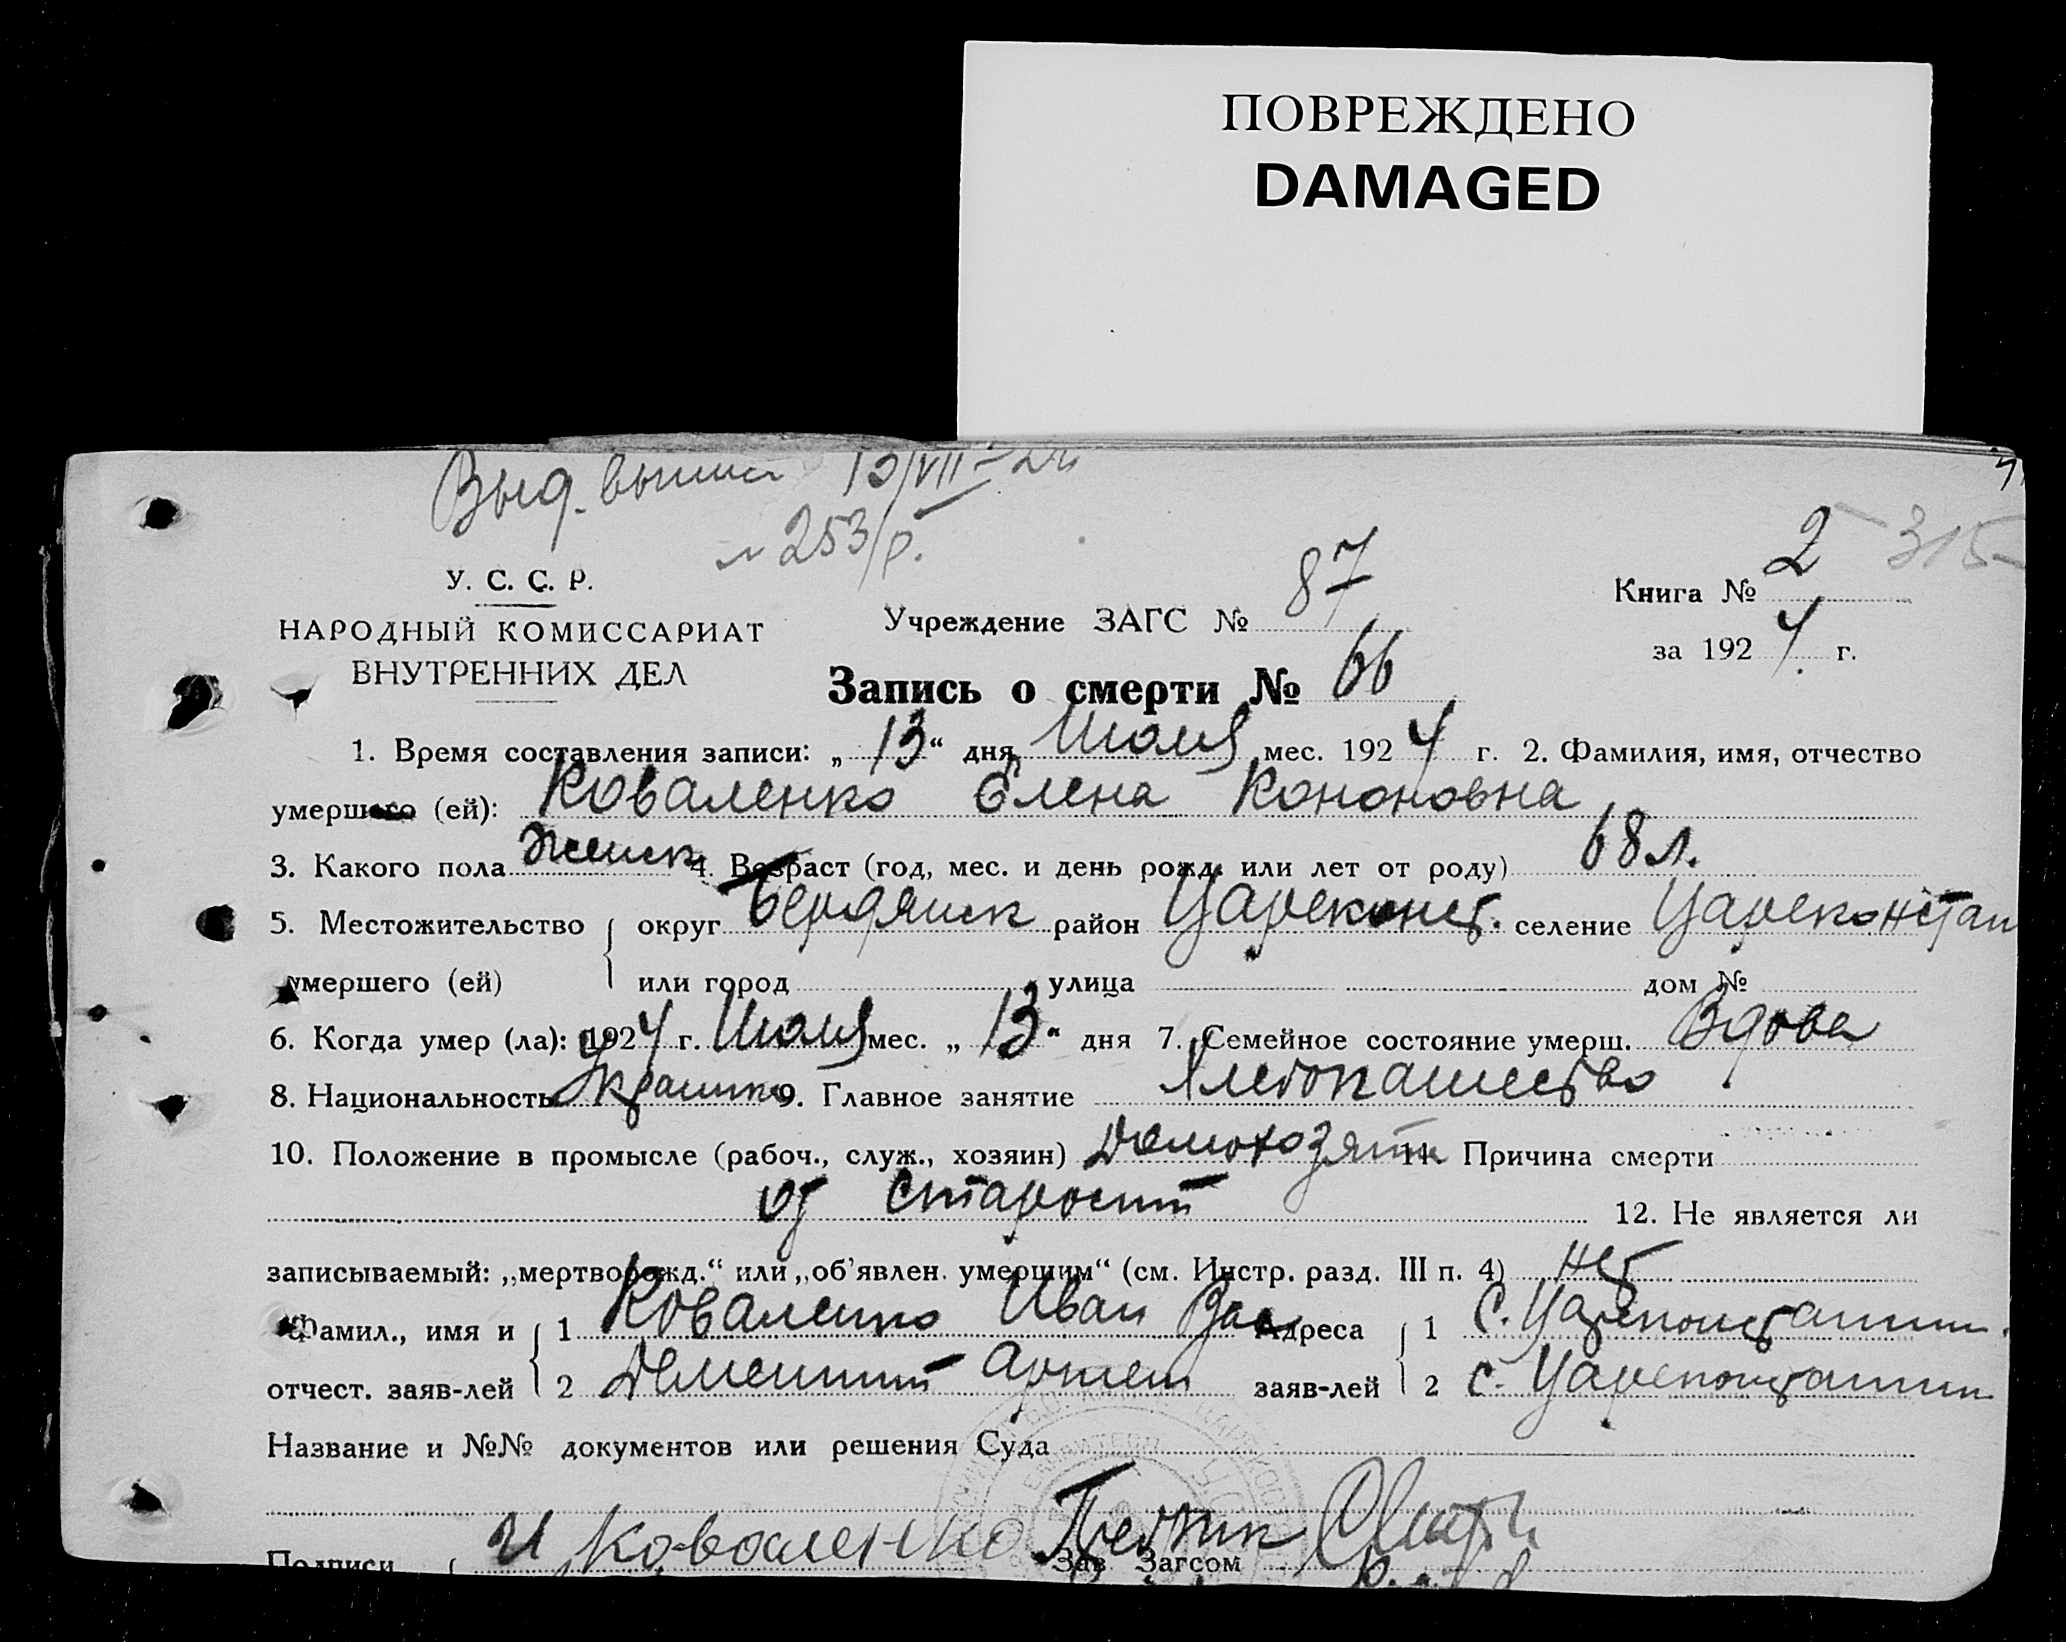 ПОВРЕЖДЕНО
DAMAGED
Выд. 13/VII-24
№ 253/р.
2 315
У. С. С. Р.
НАРОДНЫЙ КОМИССАРИАТ
ВНУТРЕННИХ ДЕЛ
Учреждение ЗАГС № 87
Книга № 2
за 1924 г.
Запись о смерти № 66
1. Время составления записи: „13“ дня Июля мес. 1924 г. 2. Фамилия, имя, отчество
умершего (ей): Коваленко Елена Кононовна
3. Какого пола Женск 4. Возраст (год, мес. и день рожд. или лет от роду) 68 л.
5. Местожительство { округ Бердянск район Цареконст. селение Цареконстан
умершего (ей) или город улица дом №
6. Когда умер (ла): 1924 г. Июля мес. „13“ дня 7. Семейное состояние умерш. Вдова
8. Национальность Украинка 9. Главное занятие Хлебопашество
10. Положение в промысле (рабоч., служ., хозяин) Домохозяин 11. Причина смерти
от старости 12. Не является ли
записываемый: „мертворожд.“ или „об’явлен. умершим“ (см. Инстр. разд. III п. 4) нет
Фамил., имя и { 1 Коваленко Иван Вас Адреса { 1 с. Цареконстантин.
отчест. заяв-лей 2 Артем заяв-лей 2 с. Цареконстантин
Название и №№ документов или решения Суда
Подписи { И Коваленко Зав Загсом